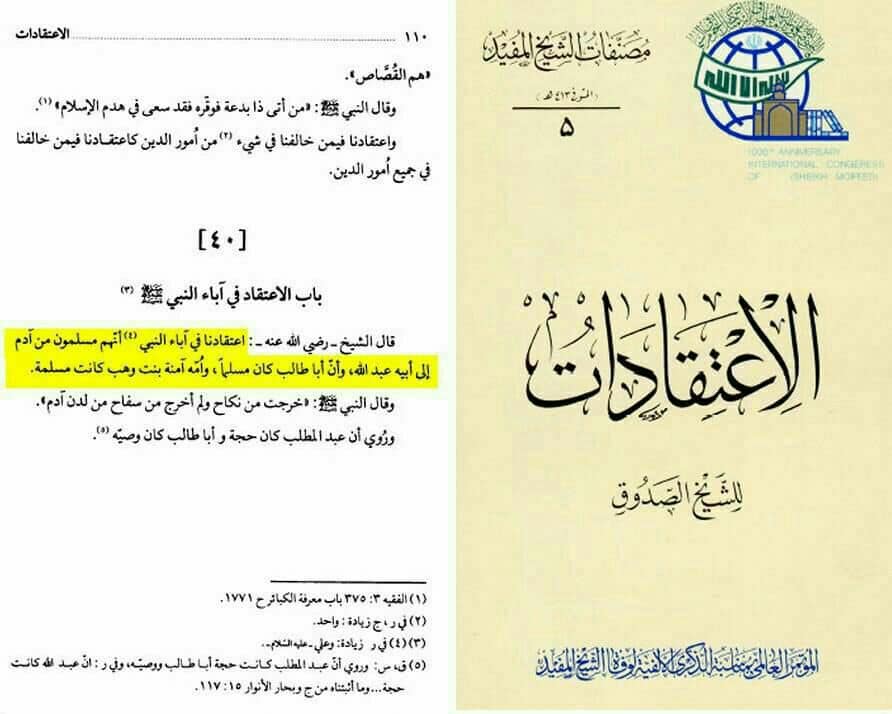 ١١٠ ............ الاعتقادات
«هم القُصَّاص».
وقال النبي ﷺ: «من أتى ذا بدعة فوقّره فقد سعى في هدم الإسلام» (١).
واعتقادنا فيمن خالفنا في شيء (٢) من أُمور الدين كاعتقادنا فيمن خالفنا
في جميع أُمور الدين.
[٤٠]
باب الاعتقاد في آباء النبي ﷺ (٣)
قال الشيخ ـ رضي الله عنه ـ: اعتقادنا في آباء النبي (٤) أنّهم مسلمون من آدم
إلى أبيه عبد الله، وأنّ أبا طالب كان مسلماً، وأُمّه آمنة بنت وهب كانت مسلمة.
وقال النبي ﷺ: «خرجت من نكاح ولم أخرج من سفاح من لدن آدم».
ورُوي أن عبد المطلب كان حجة و أبا طالب كان وصيّه (٥).
(١) الفقيه ٣: ٣٧٥ باب معرفة الكبائر ح ١٧٧١.
(٢) في ر، ج زيادة: واحد.
(٣) (٤) في ر زيادة: وعلي ـ عليه السلام ـ.
(٥) ق، س: وروي أنّ عبد المطلب كانت حجة أبا طالب ووصيّه، وفي ر: انّ عبد الله كانت
حجة... وما أثبتناه من ج وبحار الأنوار ١٥: ١١٧.
مصنّفات الشيخ المفيد
(المتوفى ٤١٣ هـ)
٥
1000th ANNIVERSARY
INTERNATIONAL CONGERESS
OF (SHEIKH MOFEED)
الاِعْتِقَادَاتُ
لِلشَّيْخِ الصَّدُوقِ
المؤتمر العالمي بمناسبة الذكرى الألفية لوفاة الشيخ المفيد